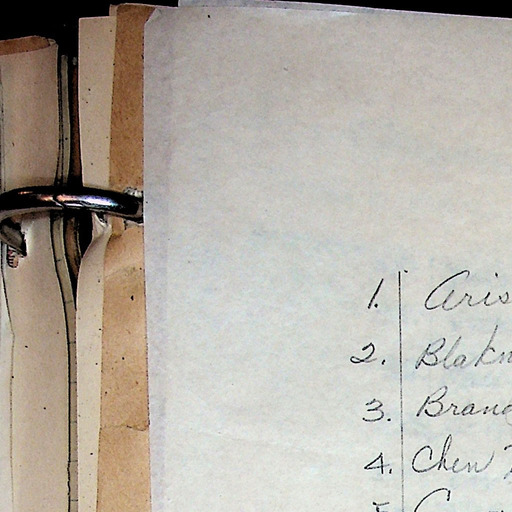 1. Aris
2. Blakn
3. Brand
4. Chen
5.